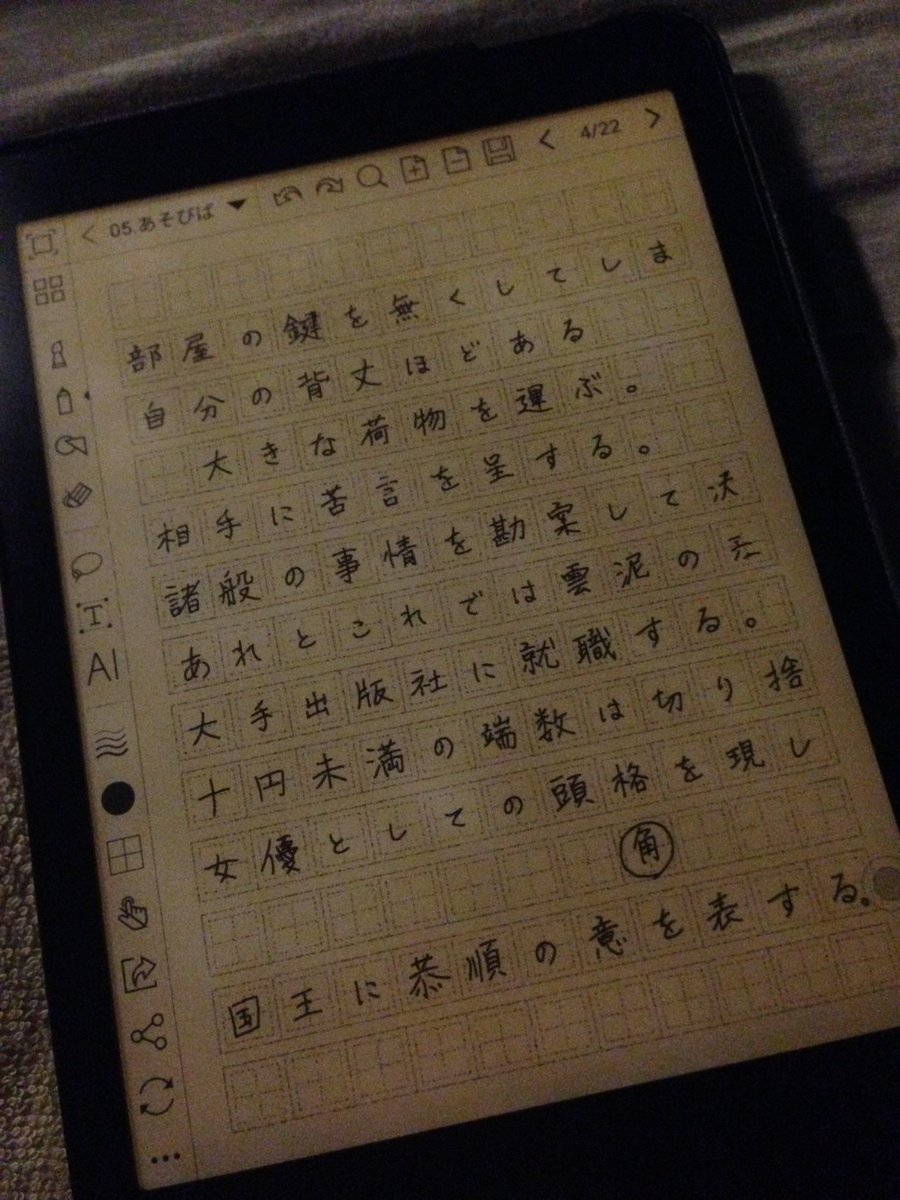 05.あそびば 4/22
部屋の鍵を無くしてしま
自分の背丈ほどある
大きな荷物を運ぶ。
相手に苦言を呈する。
諸般の事情を勘案して決
あれとこれでは雲泥の
大手出版社に就職する。
十円未満の端数は切り捨
女優としての頭格を現し
角
国王に恭順の意を表する。
T
AI